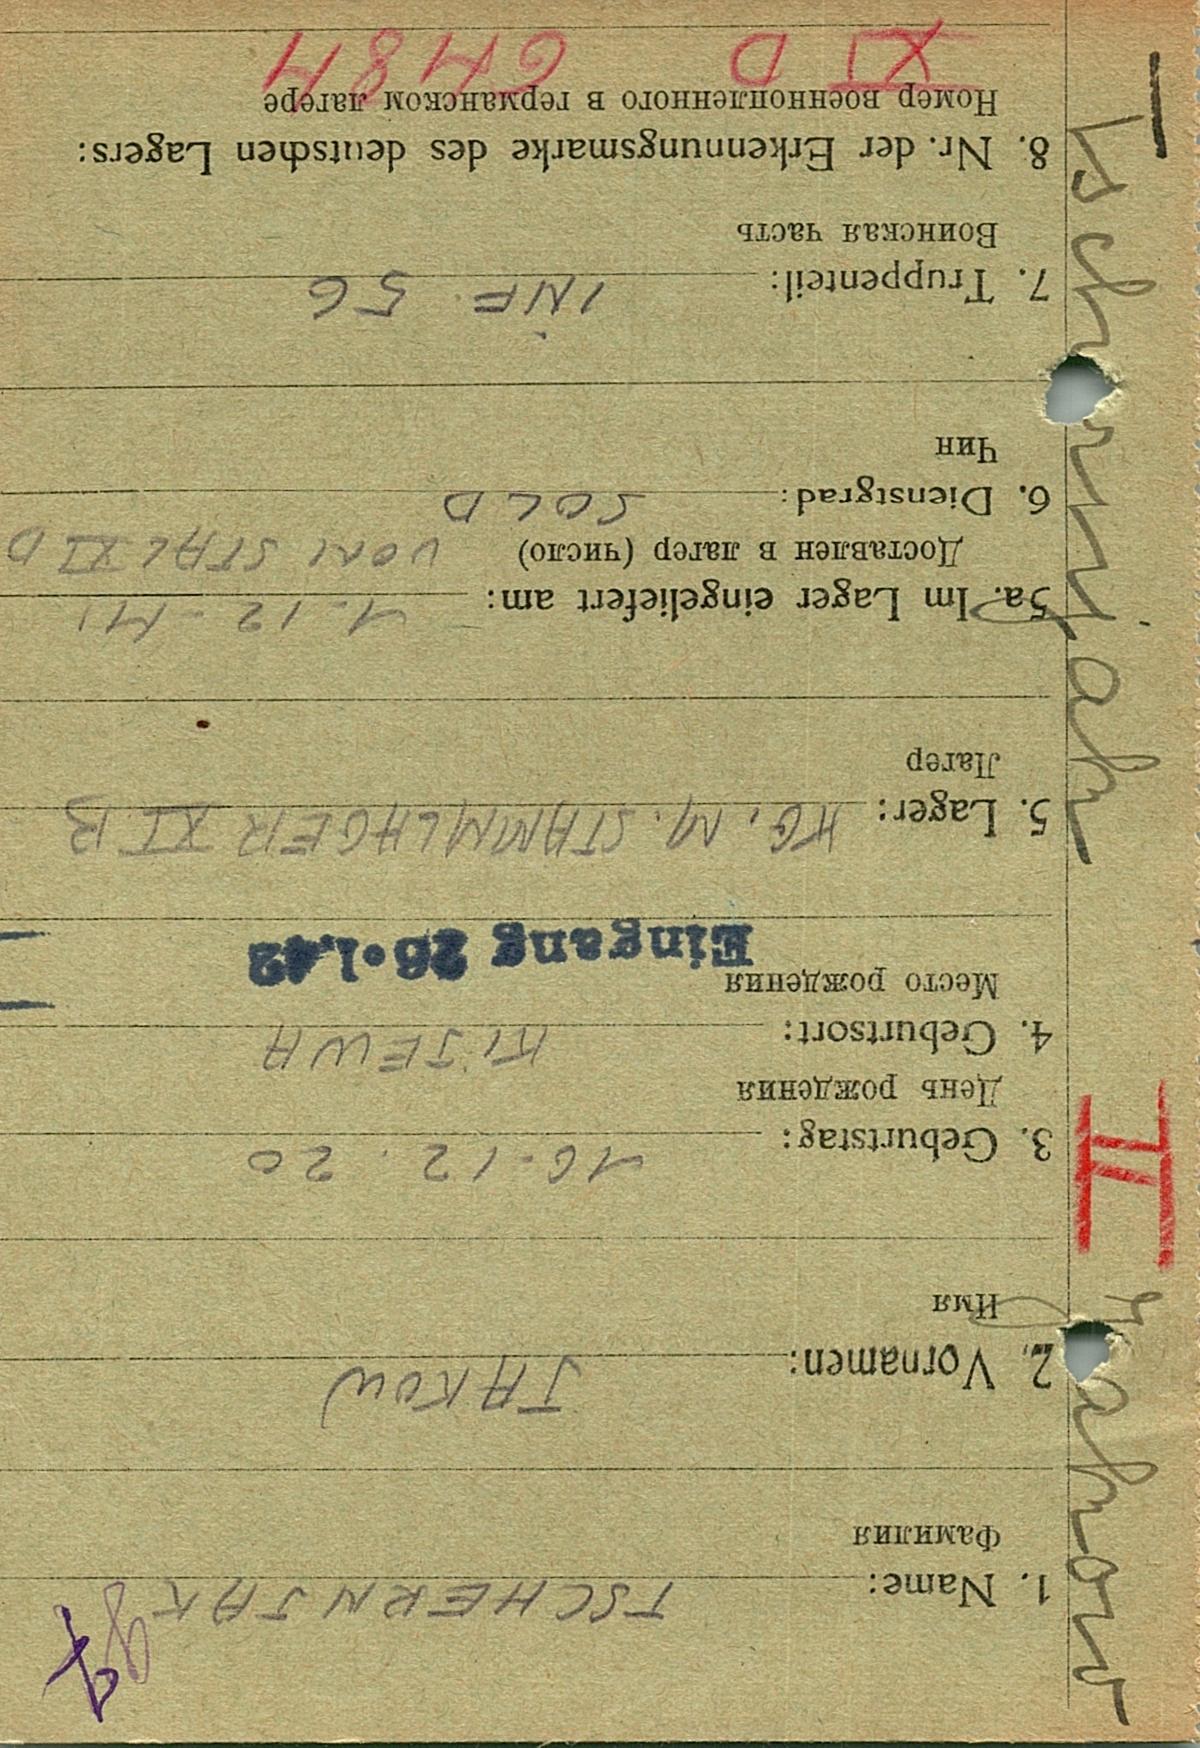 1. Name: TSCHERNJAK
Фамилия
2. Vornamen: JAKOW
Имя
3. Geburtstag: 16.12.20
День рождения
4. Geburtsort: KIJEWA
Место рождения
Eingang 26.1.42
5. Lager: KG. M. STAMMLAGER XI B
Лагер
5a. Im Lager eingeliefert am: 1.12.41
Доставлен в лагер (число) VOM STAL XI D
6. Dienstgrad: SOLD
Чин
7. Truppenteil: INF 56
Воинская часть
8. Nr. der Erkennungsmarke des deutschen Lagers:
Номер военнопленного в германском лагере
XI D 6484
Tschernjak
II
Jakow